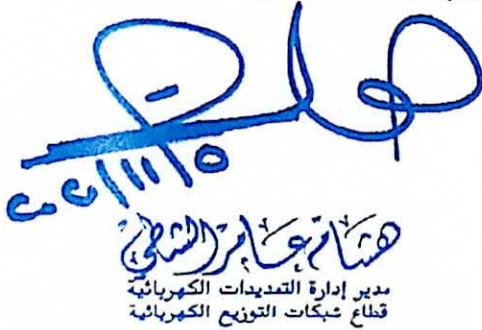 هشام عامر الشطي
مدير إدارة التمديدات الكهربائية
قطاع شبكات التوزيع الكهربائية